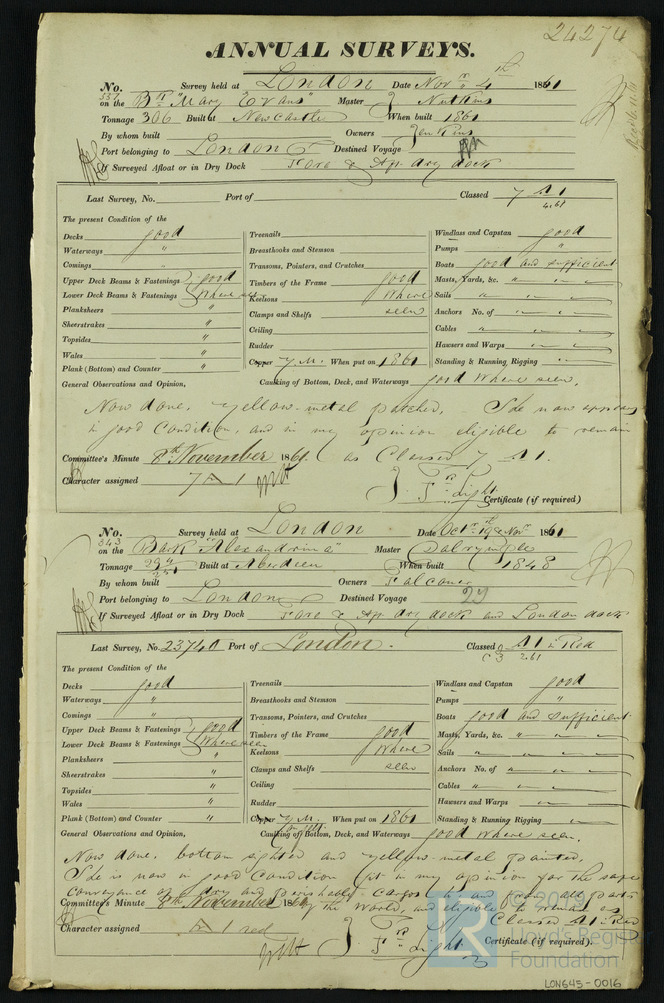 24274
ANNUAL SURVEYS.
No. 337 Survey held at London Date Novr 4th 1861
on the Bn "Mary Evans" Master J Nutkins
Tonnage 306 Built at Newcastle When built 1861
By whom built Owners Jenkins
Port belonging to London Destined Voyage
If Surveyed Afloat or in Dry Dock dry dock
Last Survey, No. Port of Classed 7 A 1
4.61
The present Condition of the
Decks good Treenails Windlass and Capstan good
Waterways " Breasthooks and Stemson Pumps "
Comings " Transoms, Pointers, and Crutches Boats good and sufficient
Upper Deck Beams & Fastenings good Timbers of the Frame good Masts, Yards, &c. "
Lower Deck Beams & Fastenings Where seen Keelsons Where Sails "
Planksheers " Clamps and Shelfs seen Anchors No. of "
Sheerstrakes " Ceiling Cables "
Topsides " Rudder Hawsers and Warps "
Wales " Copper Y.M. When put on 1861 Standing & Running Rigging "
Plank (Bottom) and Counter "
General Observations and Opinion, Caulking of Bottom, Deck, and Waterways good Where seen.
Now done, yellow-metal patched. She now appears
in good Condition, and in my opinion eligible to remain
Committee's Minute 8th November 1861. as Classed 7 A1.
Character assigned 7 A 1
J. Frs Light
Certificate (if required)
No. 343 Survey held at London Date Octr & Novr 1861
on the Bark "Alexandrina" Master Dalrymple
Tonnage Built at Aberdeen When built 1848
By whom built Owners Falconer
Port belonging to London Destined Voyage
If Surveyed Afloat or in Dry Dock dry dock and London dock
Last Survey, No. 23740 Port of London. Classed A1 in Red
C 3 2.61
The present Condition of the
Decks good Treenails Windlass and Capstan good
Waterways " Breasthooks and Stemson Pumps "
Comings " Transoms, Pointers, and Crutches Boats good and sufficient
Upper Deck Beams & Fastenings good Timbers of the Frame good Masts, Yards, &c. "
Lower Deck Beams & Fastenings Where seen Keelsons Where Sails "
Planksheers " Clamps and Shelfs seen Anchors No. of "
Sheerstrakes " Ceiling Cables "
Topsides " Rudder Hawsers and Warps "
Wales " Copper Y.M. When put on 1861 Standing & Running Rigging "
Plank (Bottom) and Counter "
General Observations and Opinion, Caulking of Bottom, Deck, and Waterways good Where seen.
Now done, bottom sighted and yellow-metal painted.
She is now in good Condition fit in my opinion for the safe
conveyance of dry and perishable cargoes to and from all parts
Committee's Minute 8th November 1861 of the World, and eligible to remain as
Classed A1 in Red
Character assigned A 1 red
J. Frs Light
Certificate (if required).
© 2019
Lloyd's Register
Foundation
LON645-0016